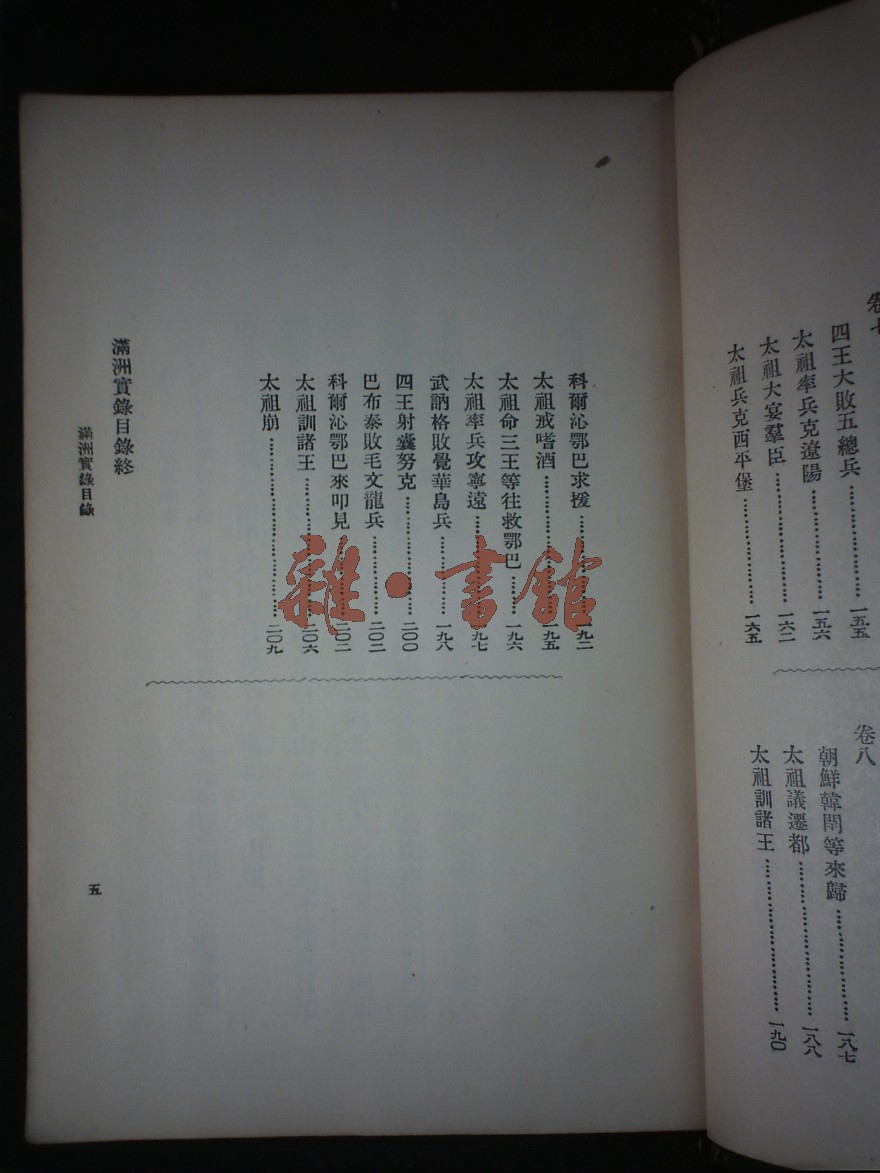 卷七
四王大敗五總兵……………一五五
太祖率兵克遼陽……………一五六
太祖大宴羣臣……………一六二
太祖兵克西平堡……………一六五
卷八
朝鮮韓閏等來歸……………一八七
太祖議遷都……………一八八
太祖訓諸王……………一九〇
科爾沁鄂巴求援……………一九二
太祖戒嗜酒……………一九五
太祖命三王等往救鄂巴……一九六
太祖率兵攻寧遠……………一九七
武訥格敗覺華島兵……………一九八
四王射囊努克……………二〇〇
巴布泰敗毛文龍兵……………二〇二
科爾沁鄂巴來叩見……………二〇二
太祖訓諸王……………二〇六
太祖崩……………二〇九
滿洲實錄目錄終
滿洲實錄目錄
五
雜·書館